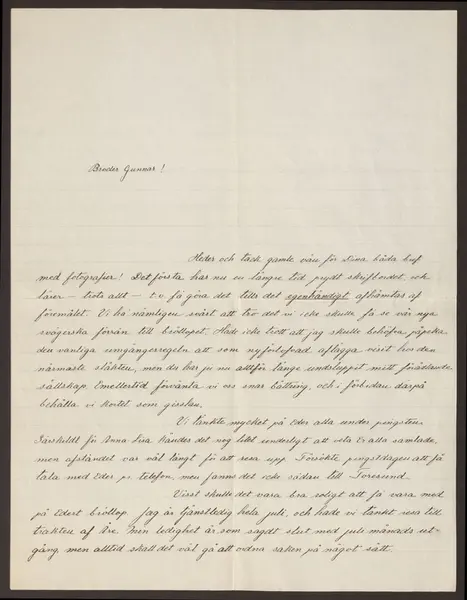 Broder Gunnar!
Heder och tack gamle vän för Dina båda bref
med fotografier! Det första har nu en längre tid prydt skrifbordet och
lärer – trots allt – t.v. få göra det tills det egenhändigt afhämtas af
föremålet. Vi ha nämligen svårt att tro det vi icke skulle få se vår nya
svägerska förrän till bröllopet. Hade icke trott att jag skulle behöfva påpeka
den vanliga umgängesregeln att som nyförlofvad aflägga visit hos den
närmaste släkten, men du har ju nu alltför länge undsluppit mitt förädlande
sällskap. Emellertid förvänta vi oss snar bättring, och i förbidan därpå
behålla vi kortet som gisslan.
Vi tänkte mycket på Eder alla under pingsten.
Särskildt för Anna Lisa kändes det nog litet underligt att veta Er alla samlade,
men afståndet var väl långt för att resa upp. Försökte pingstdagen att få
tala med Eder pr telefon, men fanns det icke sådan till
Visst skulle det vara bra roligt att få vara med
på Edert bröllop. Jag är tjänstledig hela juli, och hade vi tänkt resa till
trakten af Åre. Min ledighet är som sagdt slut med juli månads ut-
gång, men alltid skall det väl gå att ordna saken på något sätt.